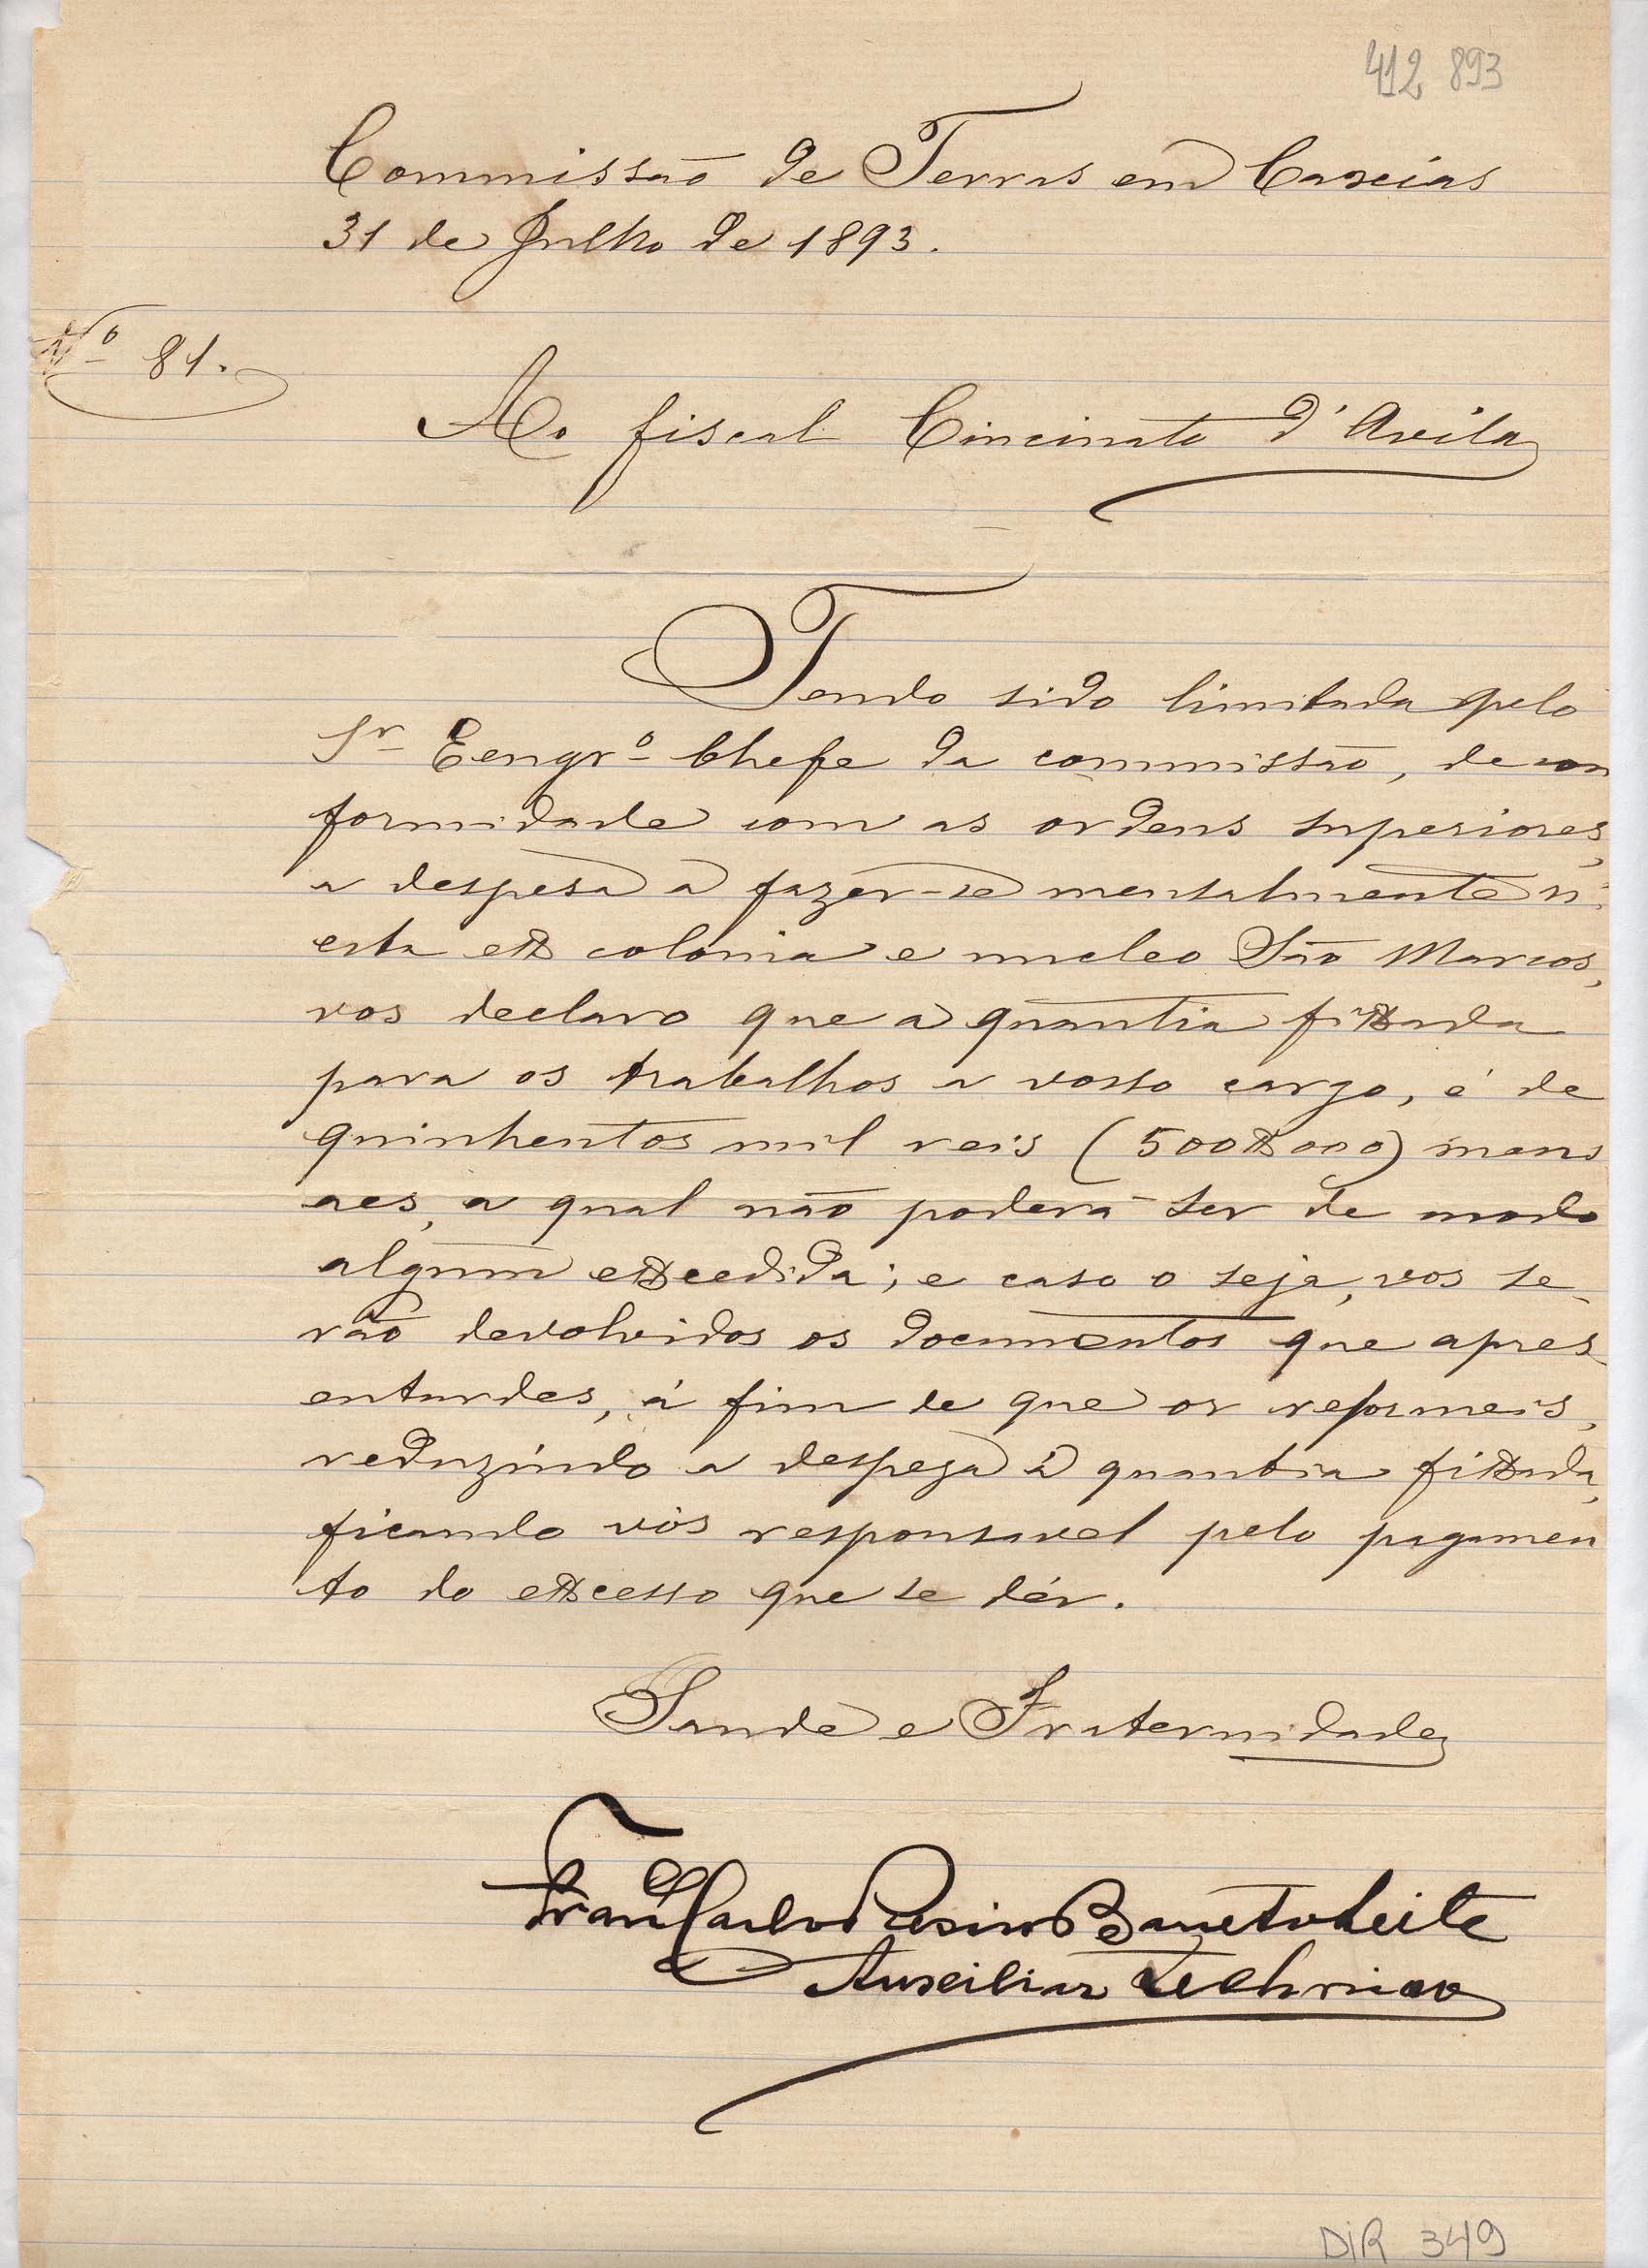 412 893
Commissão de Terras em Caxias
31 de Julho de 1893.
Nº 81.
Ao fiscal Cincinato d'Avila
Tendo sido limitada pelo
Sr Eengrº Chefe da commissão, de con
formidade com as ordens superiores,
a despesa a fazer-se mensalmente n'
esta ex colonia e nucleo São Marcos,
vos declaro que a quantia fixada
para os trabalhos a vosso cargo, é de
quinhentos mil reis (500$000) mens
aes, a qual não poderá ser de modo
algum excedida; e caso o seja, vos se-
rão devolvidos os documentos que apres
entardes, á fim de que os reformeis,
reduzindo a despeza á quantia fixada,
ficando vós responsavel pelo pagamen
to do excesso que se dér.
Saude e Fraternidade
Barreto Leite
Auxiliar Technico
DIR 349